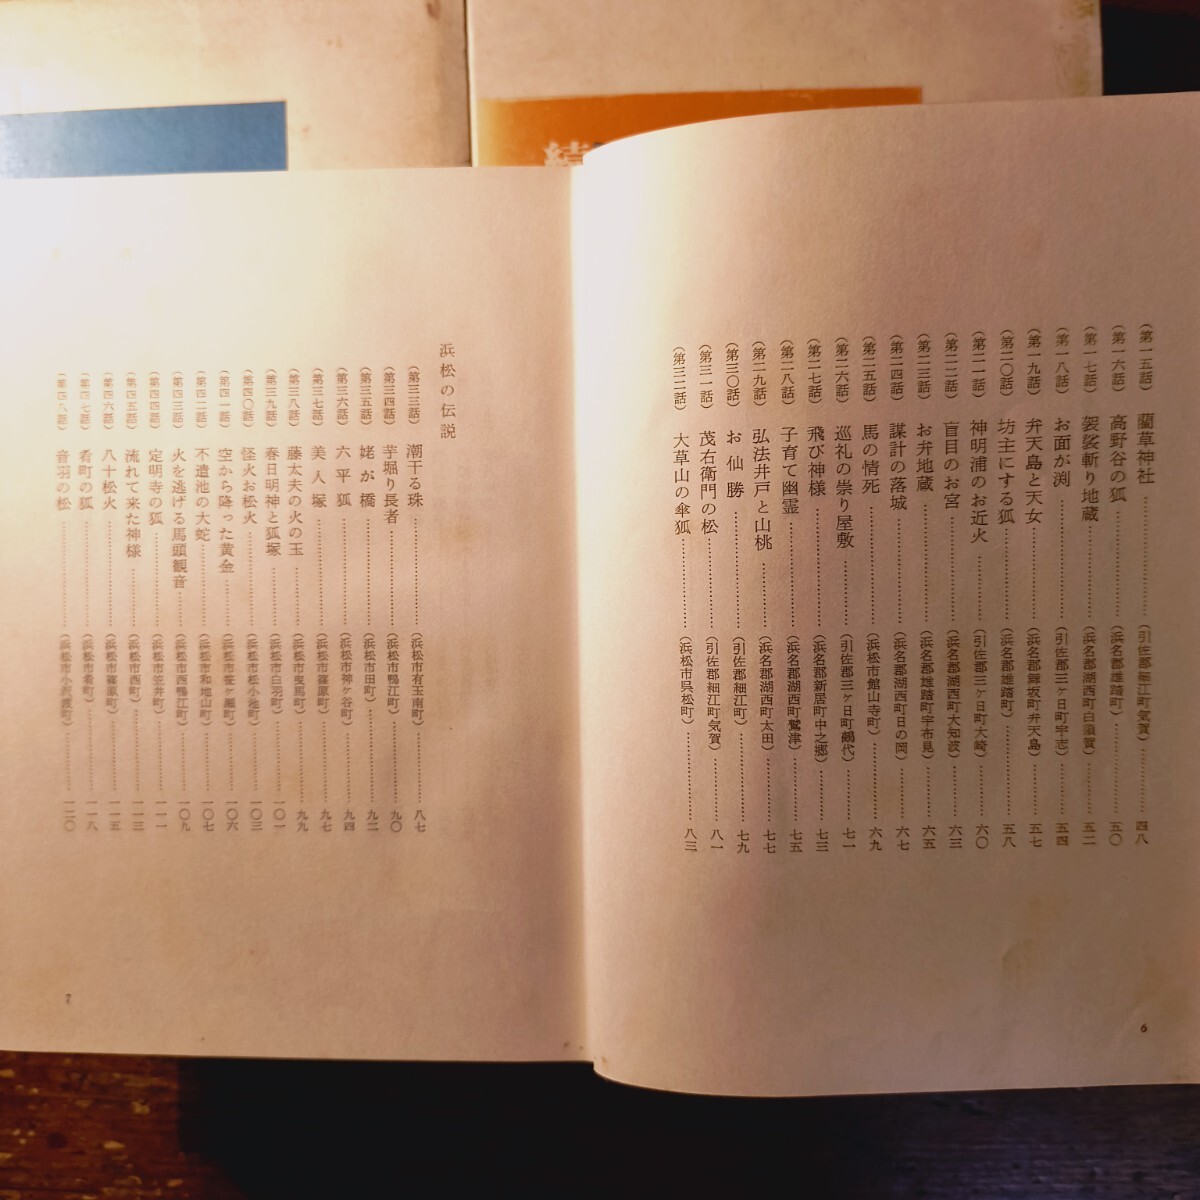 続
(第一五話) 藺草神社……………(引佐郡細江町気賀)……四八
(第一六話) 高野谷の狐……………(浜名郡雄踏町)……五〇
(第一七話) 袈裟斬り地蔵……………(浜名郡湖西町白須賀)……五二
(第一八話) お面が渕……………(引佐郡三ヶ日町宇志)……五四
(第一九話) 弁天島と天女……………(浜名郡舞坂町弁天島)……五七
(第二〇話) 坊主にする狐……………(浜名郡雄踏町)……五八
(第二一話) 神明浦のお近火……………(引佐郡三ヶ日町大崎)……六〇
(第二二話) 盲目のお宮……………(浜名郡湖西町大知波)……六三
(第二三話) お弁地蔵……………(浜名郡雄踏町宇布見)……六五
(第二四話) 謀計の落城……………(浜名郡湖西町日の岡)……六七
(第二五話) 馬の情死……………(浜松市館山寺町)……六九
(第二六話) 巡礼の祟り屋敷……………(引佐郡三ヶ日町鵺代)……七一
(第二七話) 飛び神様……………(浜名郡新居町中之郷)……七三
(第二八話) 子育て幽霊……………(浜名郡湖西町鷲津)……七五
(第二九話) 弘法井戸と山桃……………(浜名郡湖西町太田)……七七
(第三〇話) お仙勝……………(引佐郡細江町)……七九
(第三一話) 茂右衛門の松……………(引佐郡細江町気賀)……八一
(第三二話) 大草山の傘狐……………(浜松市呉松町)……八三
6
浜松の伝説
(第三三話) 潮干る珠……………(浜松市有玉南町)……八七
(第三四話) 芋堀り長者……………(浜松市鴨江町)……九〇
(第三五話) 姥が橋……………(浜松市田町)……九二
(第三六話) 六平狐……………(浜松市神ヶ谷町)……九四
(第三七話) 美人塚……………(浜松市篠原町)……九七
(第三八話) 藤太夫の火の玉……………(浜松市曳馬町)……九九
(第三九話) 春日明神と狐塚……………(浜松市白羽町)……一〇一
(第四〇話) 怪火お松火……………(浜松市松小池町)……一〇三
(第四一話) 空から降った黄金……………(浜松市笹ヶ瀬町)……一〇六
(第四二話) 不遣池の大蛇……………(浜松市和地山町)……一〇七
(第四三話) 火を逃げる馬頭観音……………(浜松市西鴨江町)……一〇九
(第四四話) 定明寺の狐……………(浜松市笠井町)……一一一
(第四五話) 流れて来た神様……………(浜松市西町)……一一三
(第四六話) 八十松火……………(浜松市篠原町)……一一五
(第四七話) 肴町の狐……………(浜松市肴町)……一一八
(第四八話) 音羽の松……………(浜松市小沢渡町)……一二〇
7